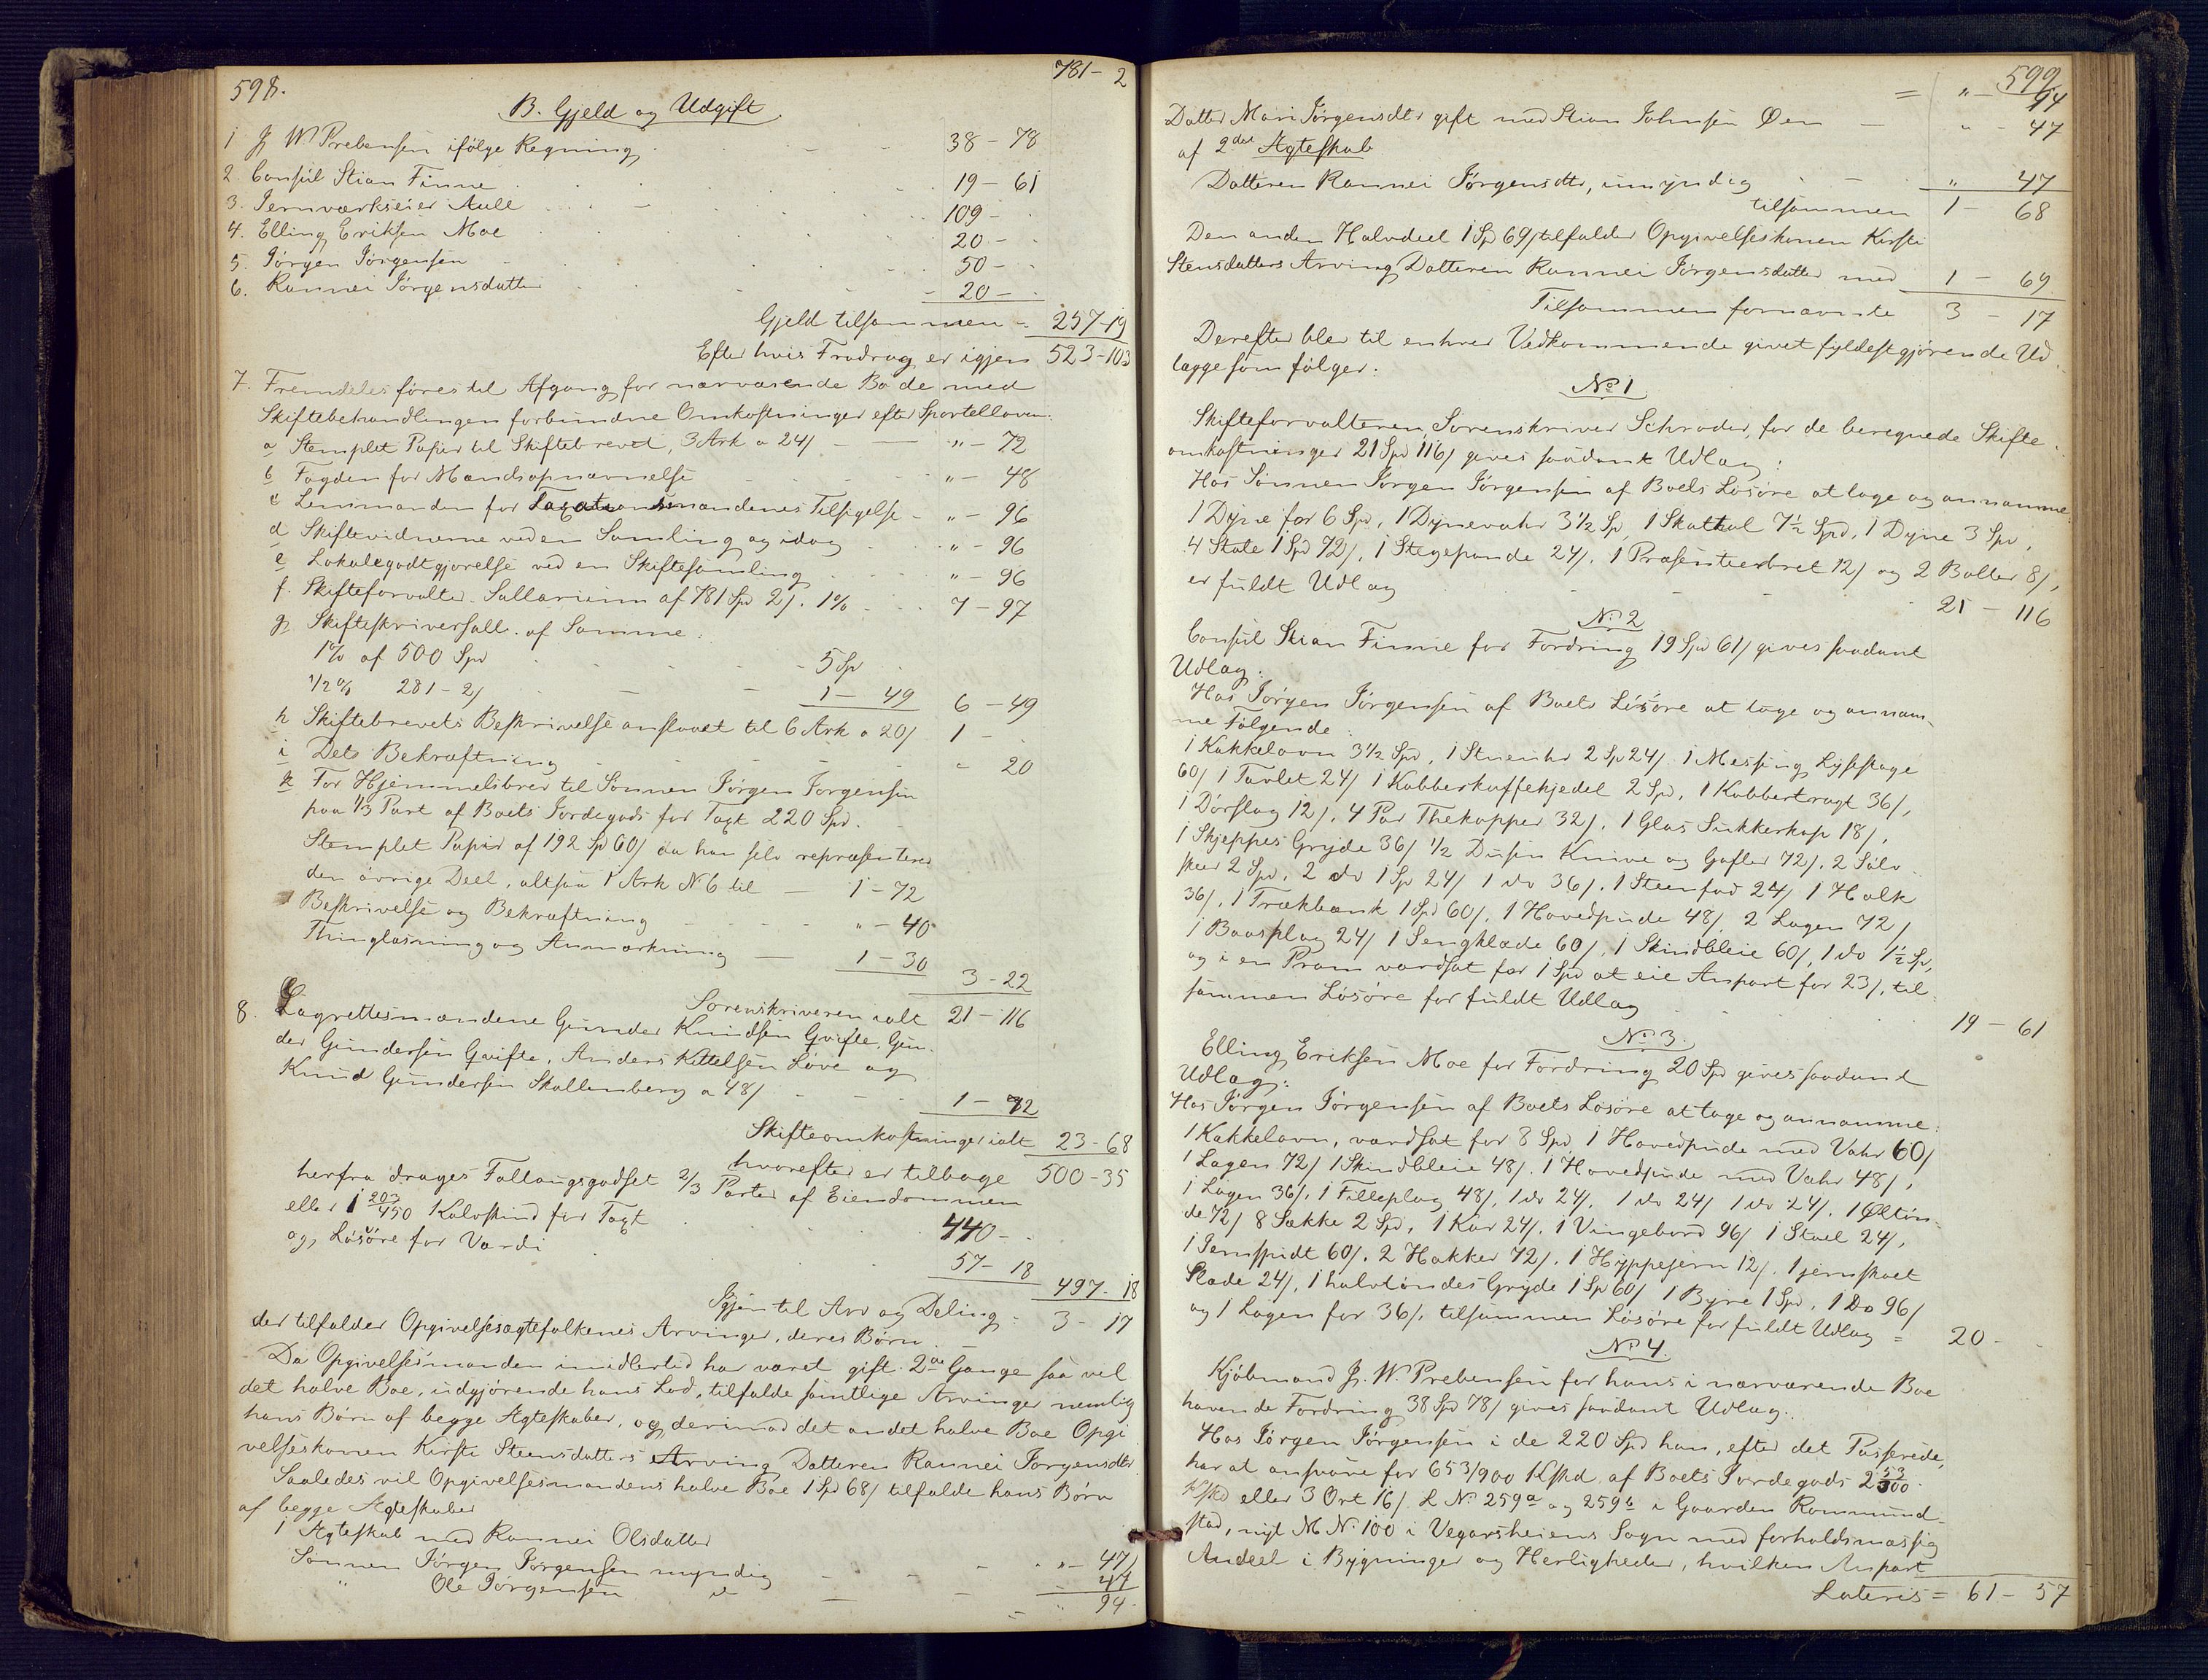 598.
781 - 2
B. Gjeld og Udgift
1 J. W. Prebensen ifölge Regning 38 - 78
2. Consul Stian Finne 19 - 61
3. Jernværkseier Aall 109 -
4. Elling Eriksen Moe 20 -
5. Jörgen Jörgensen 50 -
6. Rannei Jörgensdatter 20 -
Gjeld tilsammen = 257 - 19
Efter hvis Fradrag er igjen 523 - 103
7. Fremdeles föres til Afgang for nærværende Bo de med
Skiftebehandlingen forbundne Omkostninger efter Sportelloven:
a Stemplet Papir til Skiftebrevet, 3 Ark a 24/ " - 72
b Fogden for Mandsopnævnelse " - 48
c Lensmanden for Taxationsmændenes Tilsigelse " - 96
d Skiftevidnerne ved en Samling og idag " - 96
e Lokalegodtgjörelse ved en Skiftesamling " - 96
f. Skifteforvalter Sallarium af 781 Spd 2/. 1% 7 - 97
g Skifteskriversall. af Samme:
1% af 500 Spd 5 Sp
1/2 % 281 - 2/ 1 - 49 6 - 49
h Skiftebrevets Beskrivelse anslaaet til 6 Ark a 20/ 1 -
i Dets Bekræftning " 20
k For Hjemmelsbrev til Sönnen Jörgen Jörgensen
paa 1/3 Part af Boets Jordegods for Taxt 220 Spd.
Stemplet Papir af 192 Sp 60/ da han selv repræsenterer
den övrige Deel, altsaa 1 Ark No 6 til 1 - 72
Beskrivelse og Bekræftning " - 40
Thinglæsning og Anmærkning 1 - 30
3 - 22
Sorenskriveren ialt 21 - 116
8. Lagrettesmændene Gunder Knudsen Qvifte, Gun-
der Gundersen Qvifte, Anders Kittelsen Löve og
Knud Gundersen Skallenberg a 48/ 1 - 72
Skifteomkostninger ialt 23 - 68
hvorefter er tilbage 500 - 35
herfra drages Fallougsgodset 2/3 Parter af Eiendommen
eller 1 203/450 Kalvskind for Taxt 440 -
og, Lösöre for Værdi 57 - 18
497 - 18
Igjen til Arv og Deling = 3 - 17
der tilfalder Opgivelsesægtefolkenes Arvinger, deres Börn
Da Opgivelsesmanden imidlertid har været gift 2de Gange saa vel
det halve Boe, udgjörende hans Lod, tilfalde samtlige Arvinger nemlig
hans Börn af begge Ægteskaber, og derimod det andet halve Boe Opgi
velseskonen Kirsti Steensdatters Arving Datteren Rannei Jörgensdtr.
Saaledes vil Opgivelsesmandens halve Boe 1 Spd 68/ tilfalde hans Börn
af begge Ægteskaber
1 Ægteskab med Rannei Olsdatter
Sönnen Jörgen Jörgensen myndig " - 47/
" Ole Jörgensen do - 47
= " 94
599
= " - 94
Datter Mari Jörgensdtr gift med Stian Johnsen Öen " - 47
af 2det Ægteskab
Datteren Rannei Jörgensdtr, umyndig " 47
tilsammen 1 - 68
Den anden Halvdeel 1 Sp 69/ tilfalder Opgivelseskonen Kirsti
Stensdatters Arving Datteren Rannei Jörgensdatter med 1 - 69
Tilsammen fornævnte 3 - 17
Derefter blev til enhver Vedkommende givet fyldestgjörende Ud
lægge som fölger:
No 1
Skifteforvalteren, Sorenskriver Schroder, for de beregnede Skifte
omkostninger 21 Spd 116/ gives saadant Udlæg:
Hos Sönnen Jörgen Jörgensen af Boets Lösöre at tage og annamme:
1 Dyne for 6 Spd, 1 Dynevahr 3 1/2 Sp, 1 Skathol 7 1/2 Spd, 1 Dyne 3 Spd,
4 Stole 1 Spd 72/, 1 Stegepande 24/, 1 Præsenteerbret 12/ og 2 Baller 8/,
er fuldt Udlæg 21 - 116
No 2
Consul Stian Finne for Fordring 19 Spd 61/ gives saadant
Udlæg:
Hos Jörgen Jörgensen af Boets Lösöre at tage og annam-
me Fölgende:
1 Kakkelovn 3 1/2 Spd, 1 Stueuhr 2 Sp 24/. 1 Messing Lysestage
60/ 1 Tavlet 24/ 1 Kobberkaffekjedel 2 Spd, 1 Kobbertragt 36/,
1 Dörslag 12/, 4 Par Thekopper 32/. 1 Glas Sukkerkop 18/,
1 Skjeppes Gryde 36/ 1/2 Dusin Knive og Gafler 72/. 2 Sölv
skeer 2 Spd, 2 do 1 Sp 24/ 1 do 36/. 1 Steenfad 24/ 1 Holk
36/, 1 Trækbænk 1 Spd 60/, 1 Hovedpude 48/, 2 Lagen 72/
1 Baasplag 24/ 1 Sengklæde 60/, 1 Skindbleie 60/, 1 do 1 1/2 Sp,
og i en Pram værdsat for 1 Spd at eie Anpart for 23/, til-
sammen Lösöre for fuldt Udlæg 19 - 61
No 3.
Elling Eriksen Moe for Fordring 20 Spd gives saadant
Udlæg:
Hos Jörgen Jörgensen af Boets Lösöre at tage og annamme:
1 Kakkelovn, værdsat for 8 Spd, 1 Hovedpude med Vahr 60/
1 Lagen 72/ 1 Skindbleie 48/. 1 Hovedpude med Vahr 48/,
1 Lagen 36/, 1 Filleplag 48/, 1 do 24/, 1 do 24/ 1 do 24/, 1 Öltön-
de 72/ 8 Sække 2 Spd, 1 Kar 24/, 1 Vingebord 96/ 1 Stoel 24/,
1 Jernspidt 60/. 2 Hakker 72/, 1 Hyppejern 12/. 1 jernskoet
Slæde 24/, 1 halvtöndes Gryde 1 Sp 60/ 1 Byre 1 Spd, 1 Do 96/
og 1 Lagen for 36/. tilsammen Lösöre for fuldt Udlæg = 20 -
No 4.
Kjöbmand J. W. Prebensen for hans i nærværende Boe
havende Fordring 38 Spd 78/ gives saadant Udlæg:
Hos Jörgen Jörgensen i de 220 Spd han, efter det Passerede,
har at ansvare for 653/900 Kskd af Boets Jordegods 2 53/300
Kskd eller 3 Ort 16/. L No 259a og 259b i Gaarden Rommund-
stad, nyt M No 100 i Vegarsheiens Sogn med forholdsmæssig
Andeel i Bygninger og Herligheder, hvilken Anpart
Lateris = 61 - 57